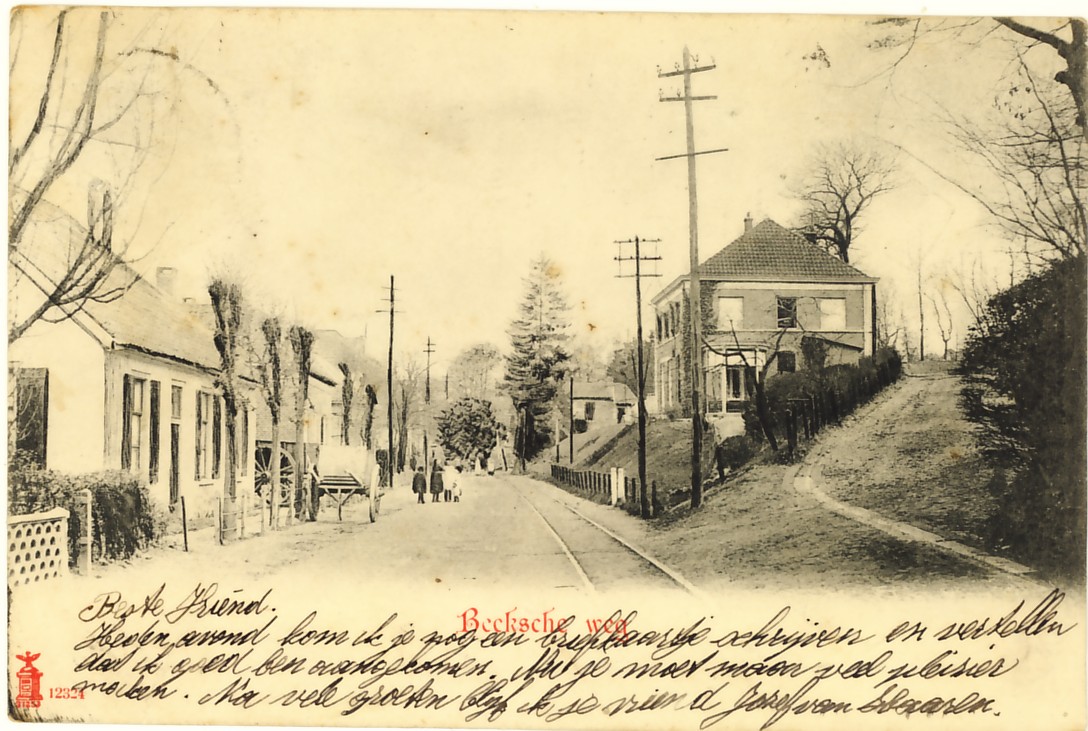 Beste Vriend.
Beeksche weg
Heden avond kom ik je nog een briefkaartje schrijven en vertellen
dat ik goed ben aangekomen. Nu je moet maar veel pleisier
maken. Na vele groeten blijf ik je vriend Jozef van
12324